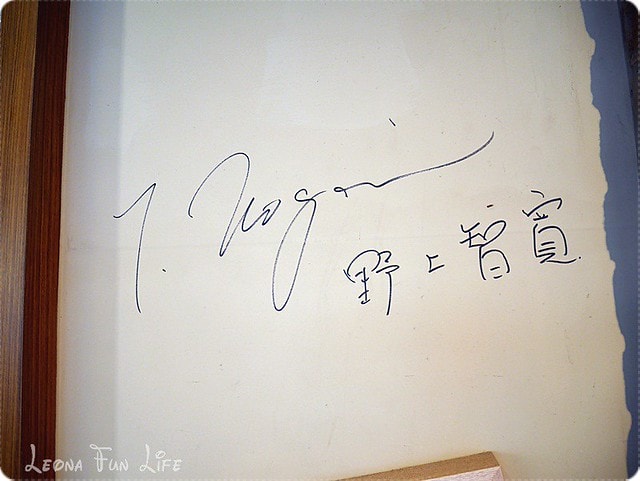 T. Nogami
野上智寛
Leona Fun Life